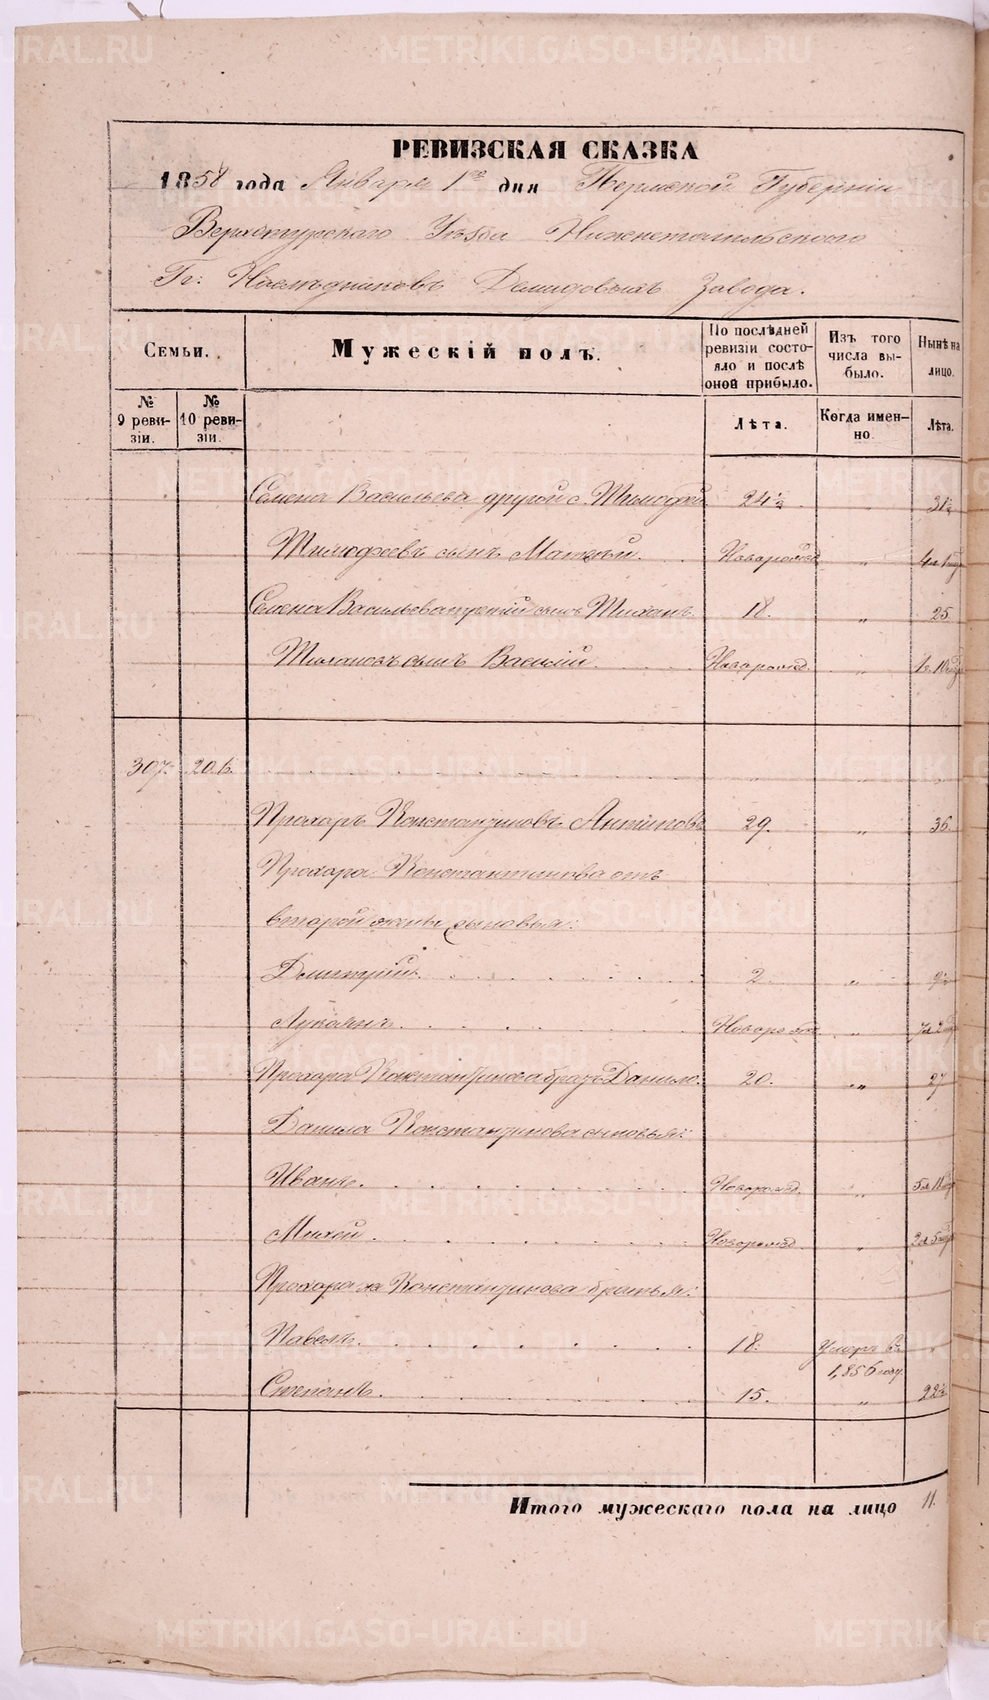 РЕВИЗСКАЯ СКАЗКА
1858 года Января 1го дня Пермской Губернии
Верхотурскаго Уѣзда Нижнетагильскаго
Гг: Наслѣдниковъ Демидовыхъ Завода.
Семьи.
Мужескій полъ.
По послѣдней ревизіи состояло и послѣ оной прибыло.
Изъ того числа выбыло.
Нынѣ на лицо.
№ 9 ревизіи.
№ 10 ревизіи.
Лѣта.
Когда именно.
Лѣта.
Семена Васильева другой с. Тимофей 24½ „ 31½
Тимофеевъ сынъ Матвѣй. Новорожд „
Семена Васильева третій сынъ Тихонъ. 18. „ 25
Тихоновъ сынъ Василій Новорожд. „
307. 206.
Прохоръ Константиновъ Антиповъ 29. „ 36.
Прохора Константинова отъ
второй жены сыновья:
Дмитрій. 2 „ 9½
Лукоянъ. Новорожд „
Прохора Константинова братъ Данило. 20. „ 27
Данила Константинова сыновья:
Иванъ. Новорожд. „
Михей. Новорожд „
Прохора же Константинова братья:
Павелъ. 18. Умеръ въ 1,856 году. „
Степанъ. 15. „ 22½
Итого мужескаго пола на лицо 11.
METRIKI.GASO-URAL.RU